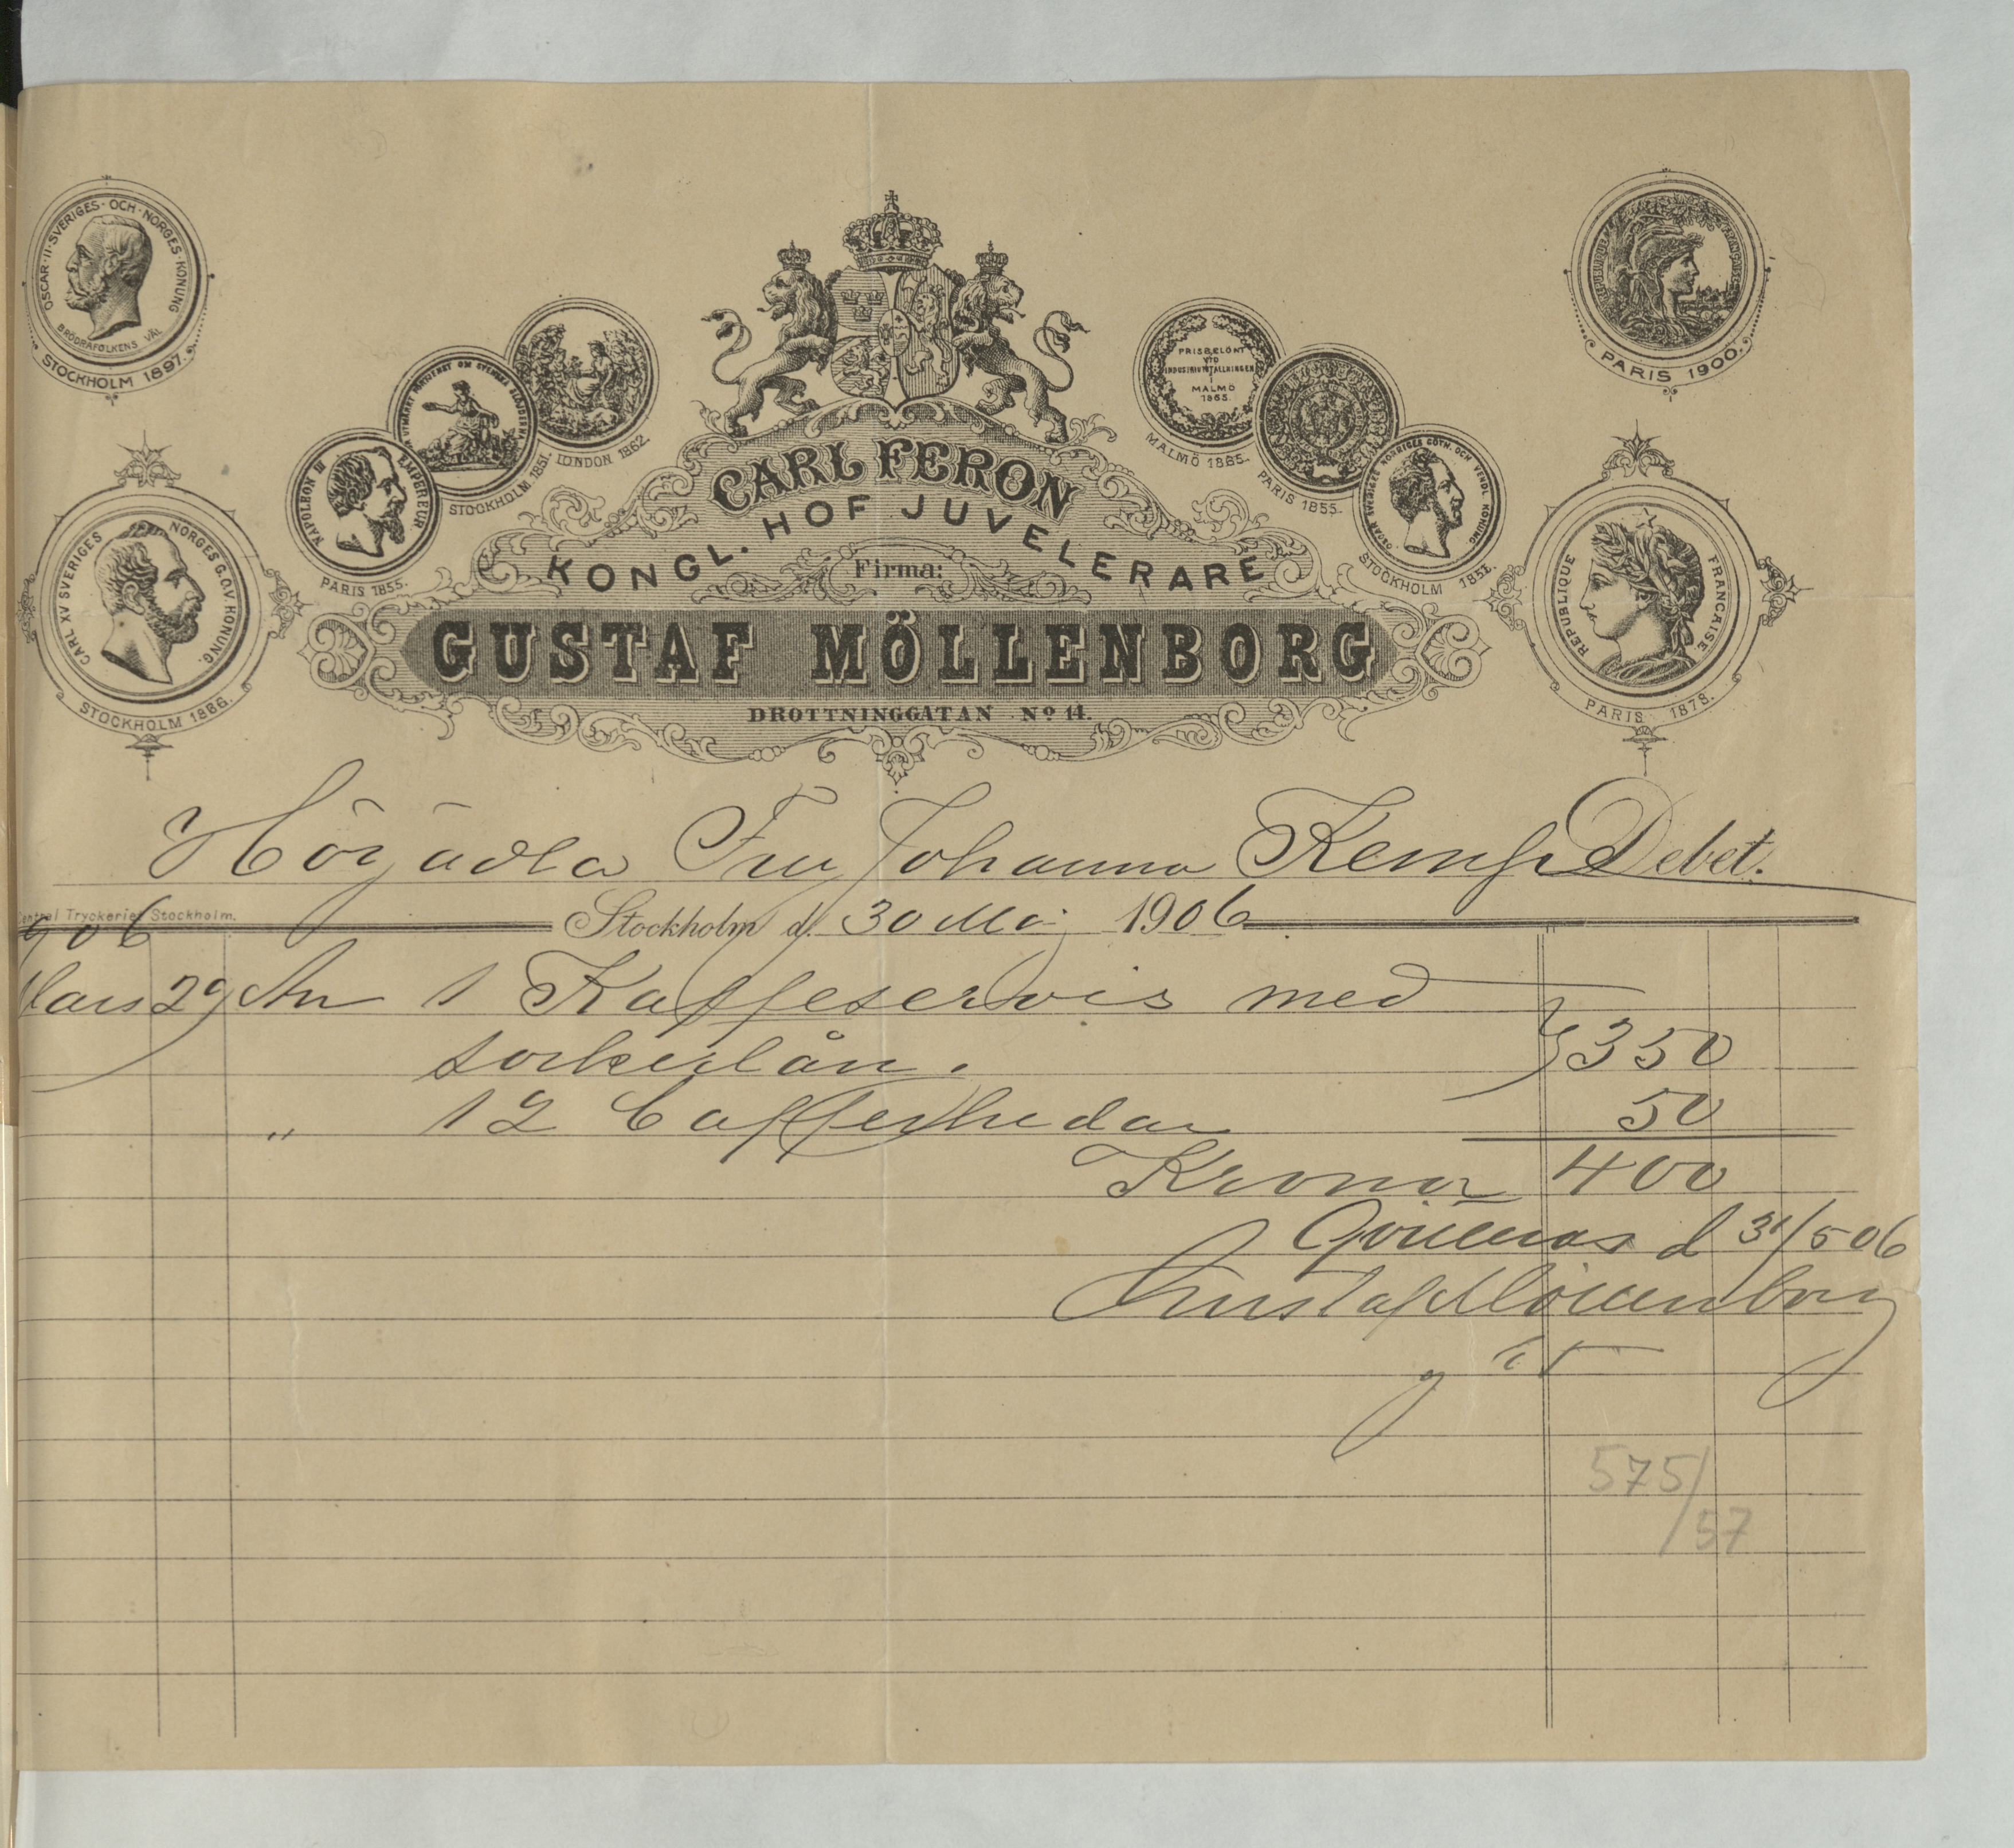 OSCAR·II·SVERIGES·OCH·NORGES·KONUNG
BRÖDRAFOLKENS VÄL
STOCKHOLM 1897.
PARIS 1900.
LONDON 1862.
STOCKHOLM 1851.
NAPOLEON III EMPEREUR
PARIS 1855.
PRISBELÖNT
VID
INDUSTRIUTSTÄLLNINGEN
I
MALMÖ
1865.
MALMÖ 1865.
PARIS 1855.
STOCKHOLM 1851.
CARL XV SVERIGES NORGES G.O.V. KONUNG.
STOCKHOLM 1866.
REPUBLIQUE FRANCAISE
PARIS 1878.
CARL FERON
KONGL. HOF JUVELERARE
Firma:
GUSTAF MÖLLENBORG
DROTTNINGGATAN No 14.
Högädla Fru Johanna Kempe Debet.
Central Tryckeriet Stockholm.
Stockholm d. 30 Maj 1906
906
Mars 29 An 1 Kaffeservis med
sockerlån. 350
" 12 Caffeskedar 50
Kronor 400
Qvitteras d 31/5 06
Gustaf Möllenborg
575/57